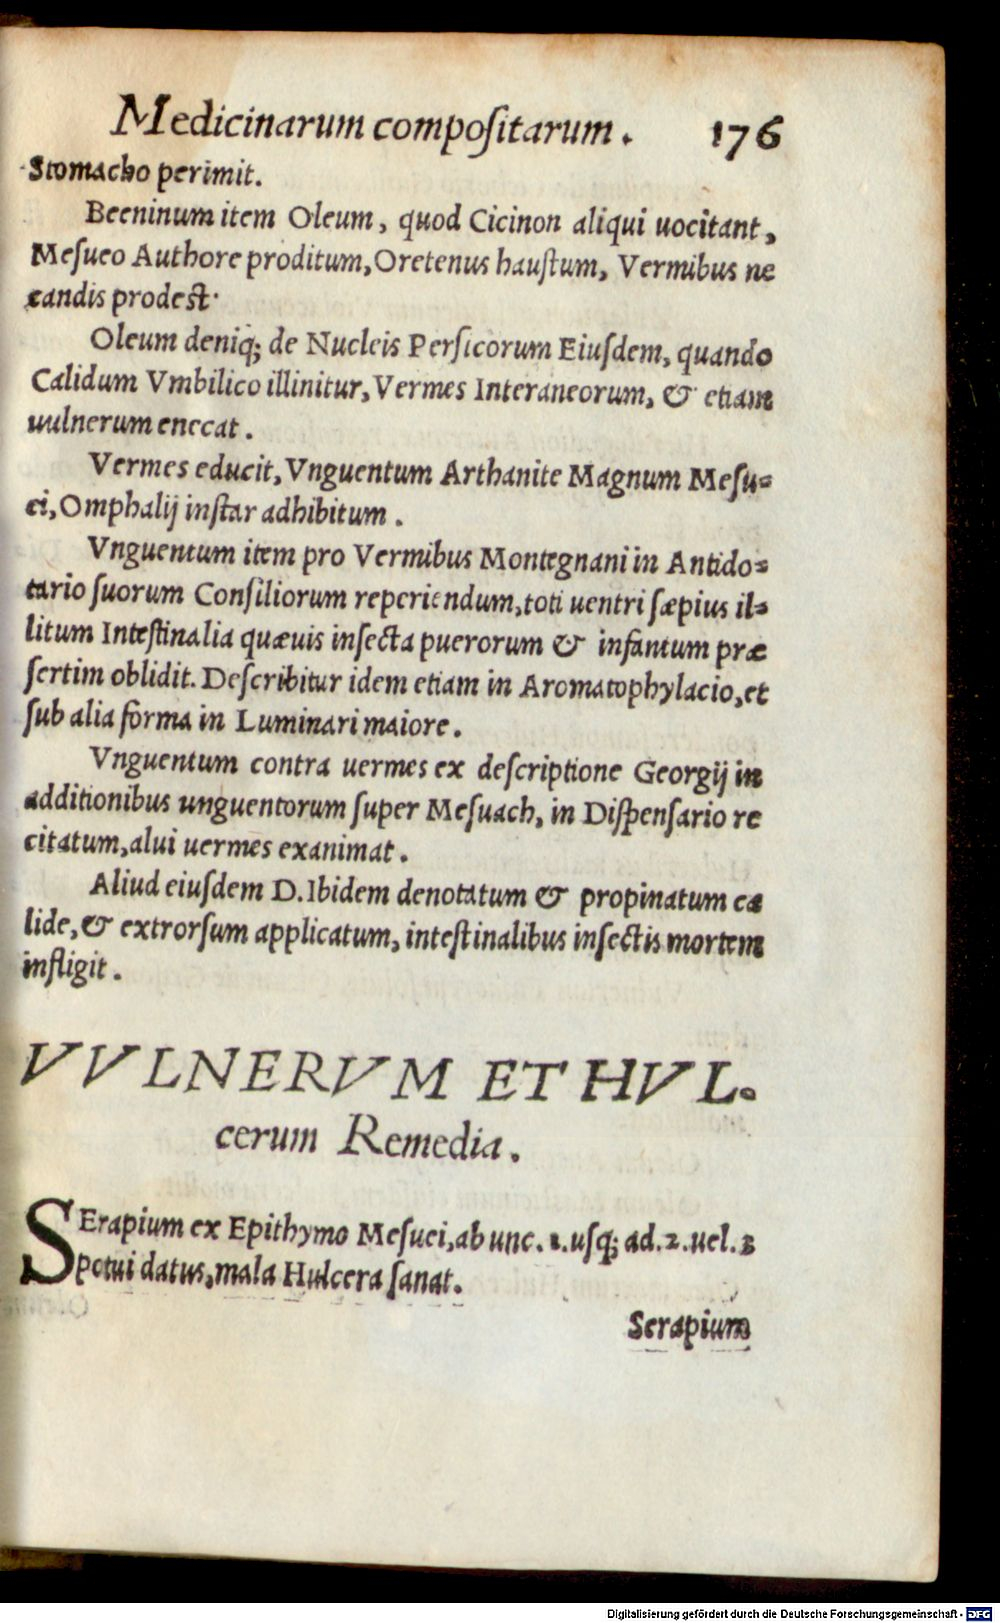 Medicinarum compositarum. 176
Stomacho perimit.
Beeninum item Oleum, quod Cicinon aliqui uocitant,
Mesueo Authore proditum, Oretenus haustum, Vermibus ne
candis prodest.
Oleum deniq; de Nucleis Persicorum Eiusdem, quando
Calidum Vmbilico illinitur, Vermes Interaneorum, & etiam
uulnerum enecat.
Vermes educit, Vnguentum Arthanite Magnum Mesu=
ei, Omphalij instar adhibitum.
Vnguentum item pro Vermibus Montegnani in Antido=
tario suorum Consiliorum reperiendum, toti uentri sæpius il=
litum Intestinalia quæuis insecta puerorum & infantum præ
sertim oblidit. Describitur idem etiam in Aromatophylacio, et
sub alia forma in Luminari maiore.
Vnguentum contra uermes ex descriptione Georgij in
additionibus unguentorum super Mesuach, in Dispensario re
citatum, alui uermes exanimat.
Aliud eiusdem D. Ibidem denotatum & propinatum ca
lide, & extrorsum applicatum, intestinalibus insectis mortem
infligit.
VVLNERVM ET HVL.
cerum Remedia.
SErapium ex Epithymo Mesuei, ab unc. 1. usq; ad. 2. uel. 3
potui datus, mala Hulcera sanat.
Serapium
Digitalisierung gefördert durch die Deutsche Forschungsgemeinschaft - DFG